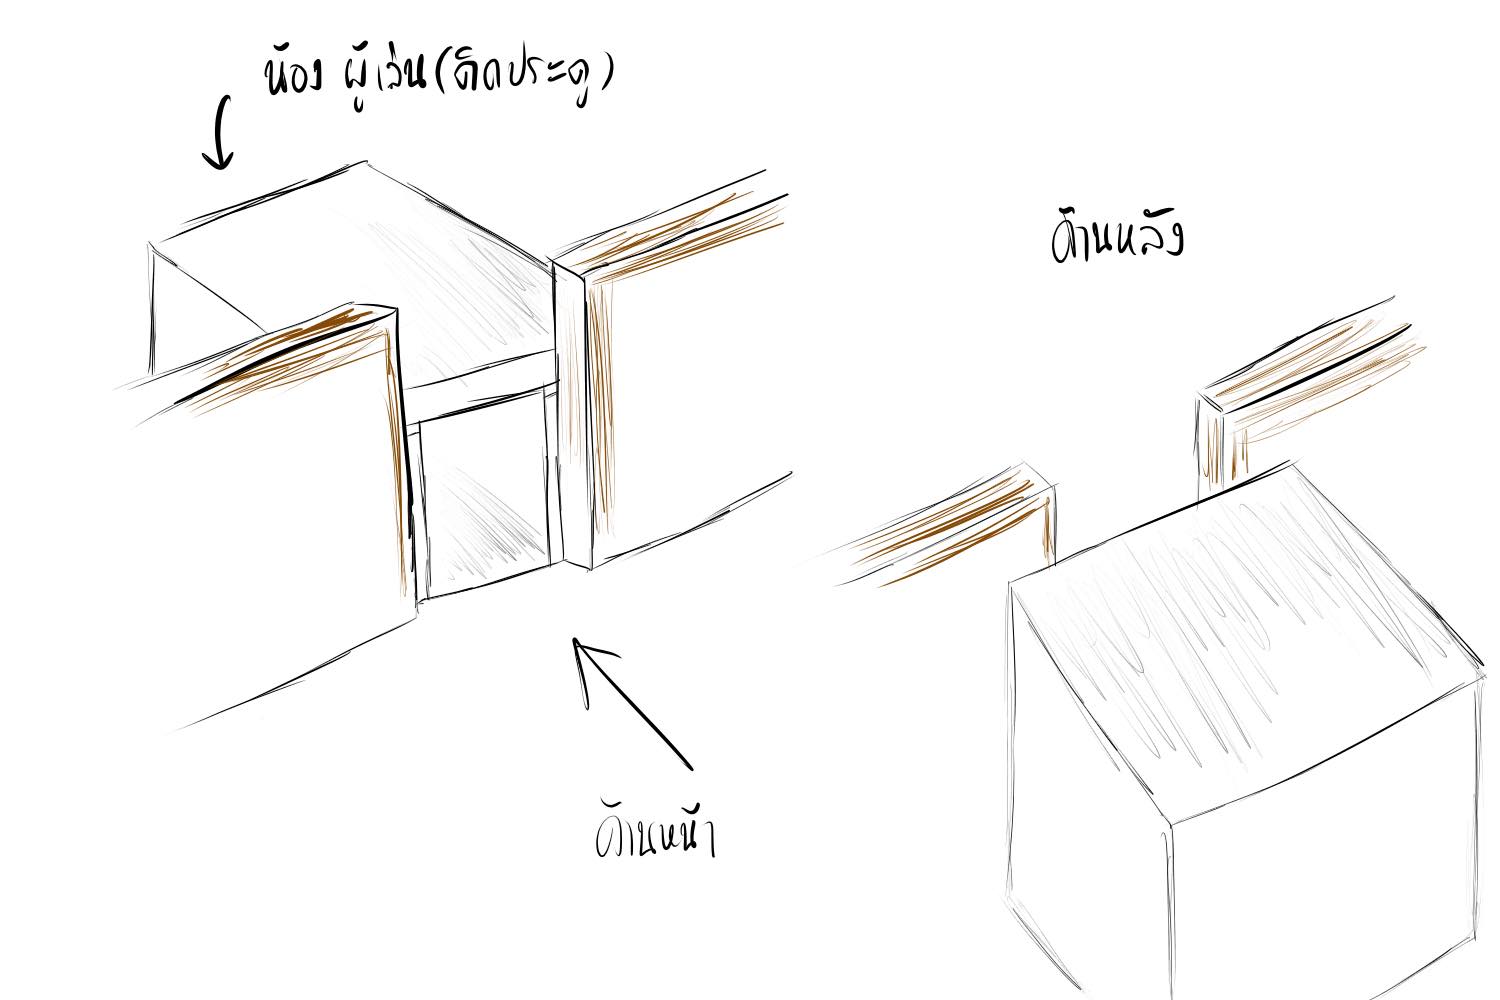 ห้อง ผู้เล่น(ติดประตู)
ด้านหลัง
ด้านหน้า